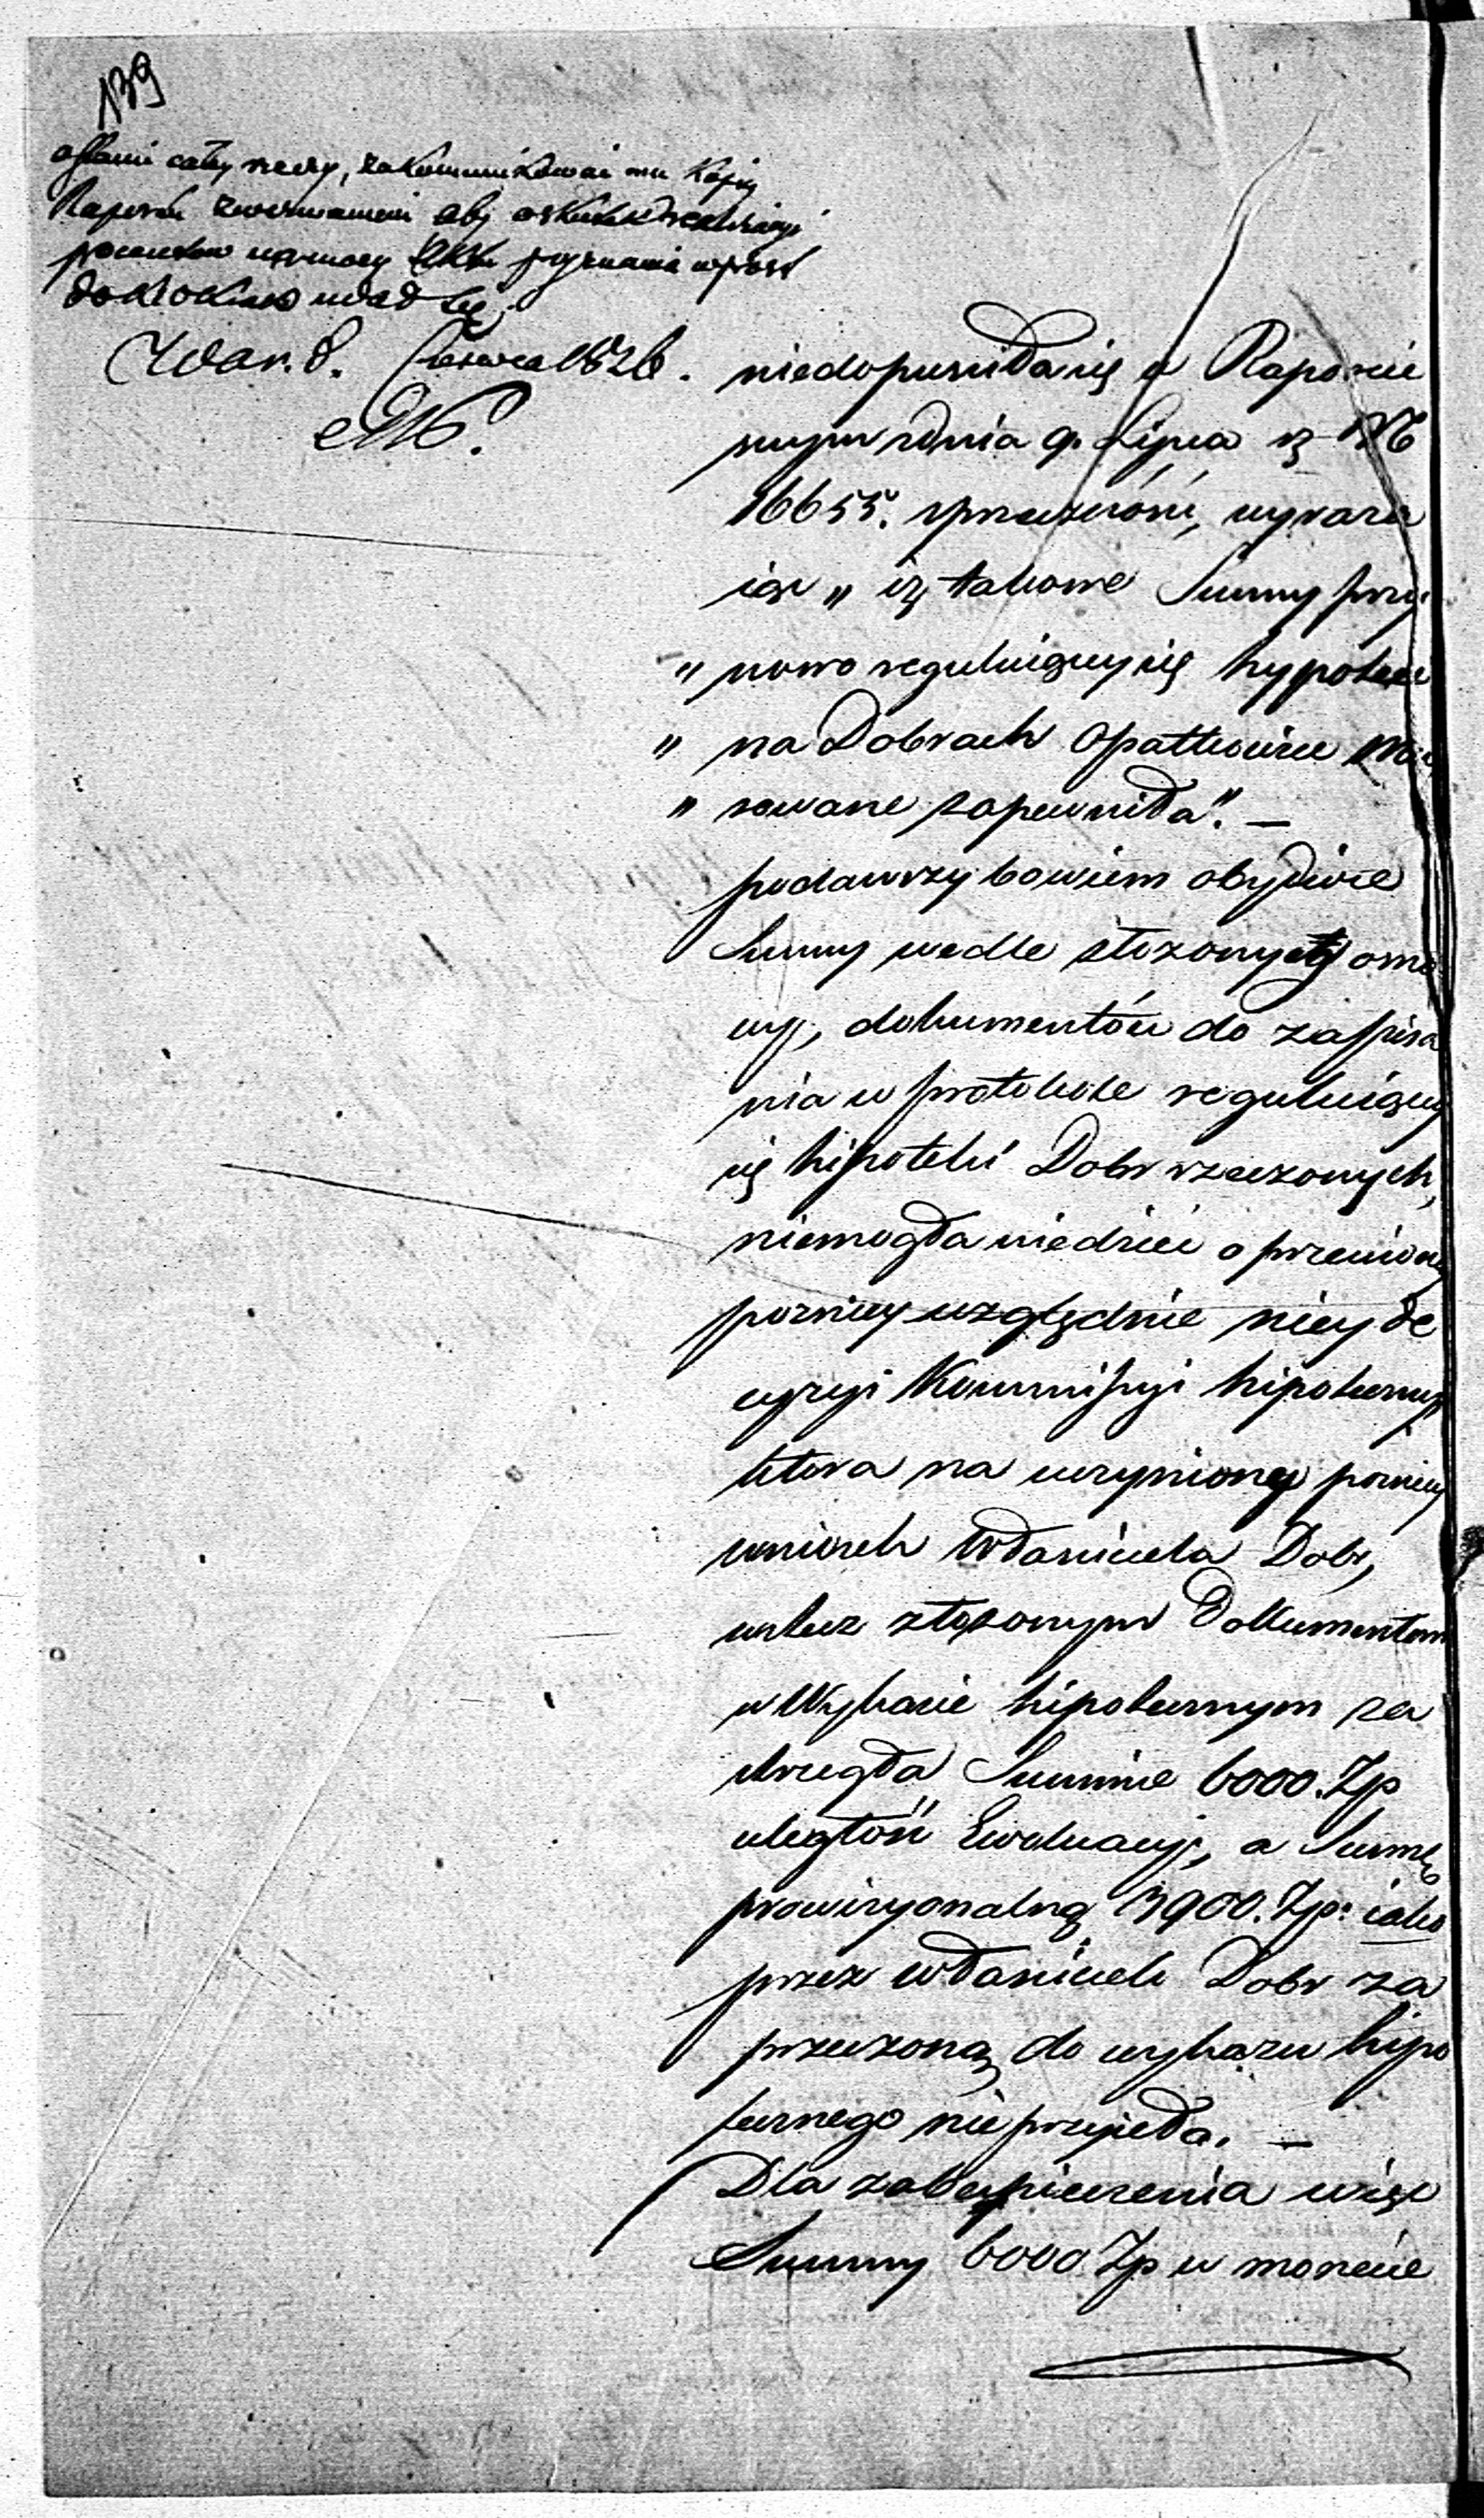 139
cały rzeczy, zakommunikować mu kopię
Raportu z wezwaniem aby
poszukiw
kroków udał się
War. 8. Czerwca 1826.
niedopuściła się w Raporcie
swym z dnia 9. Lipca z N
16655. sprzeczności, wyraża
iąc „ iż takowe Summy przy
„ nowo reguluiącey się hypotece
„ na Dobrach Opatkowice
„ sowane zapewniła". —
podawszy bowiem obydwie
Summy wedle złożonych
wy, dokumentów do zapisa
nia w protokole reguluiącey
się hipoteki Dobr rzeczonych,
niemogła wiedzieć o przeciwney
pozniey względnie niey de
cyzyi Kommissyi hipoteczney
ktora na uczyniony pozniey
wniosek właściciela Dobr,
wbrew złożonym Dokumentom
w Wykazie hipotecznym za
strzegła Summie 6000. Zp
uległość Ewaluacyi, a Summę
prowizyonalną 3900. Zp: iako
przez właściciela Dobr za
przeczoną do wykazu hipo
tecznego nie przyięła. —
Dla zabezpieczenia więc
Summy 6000 Zp w monecie